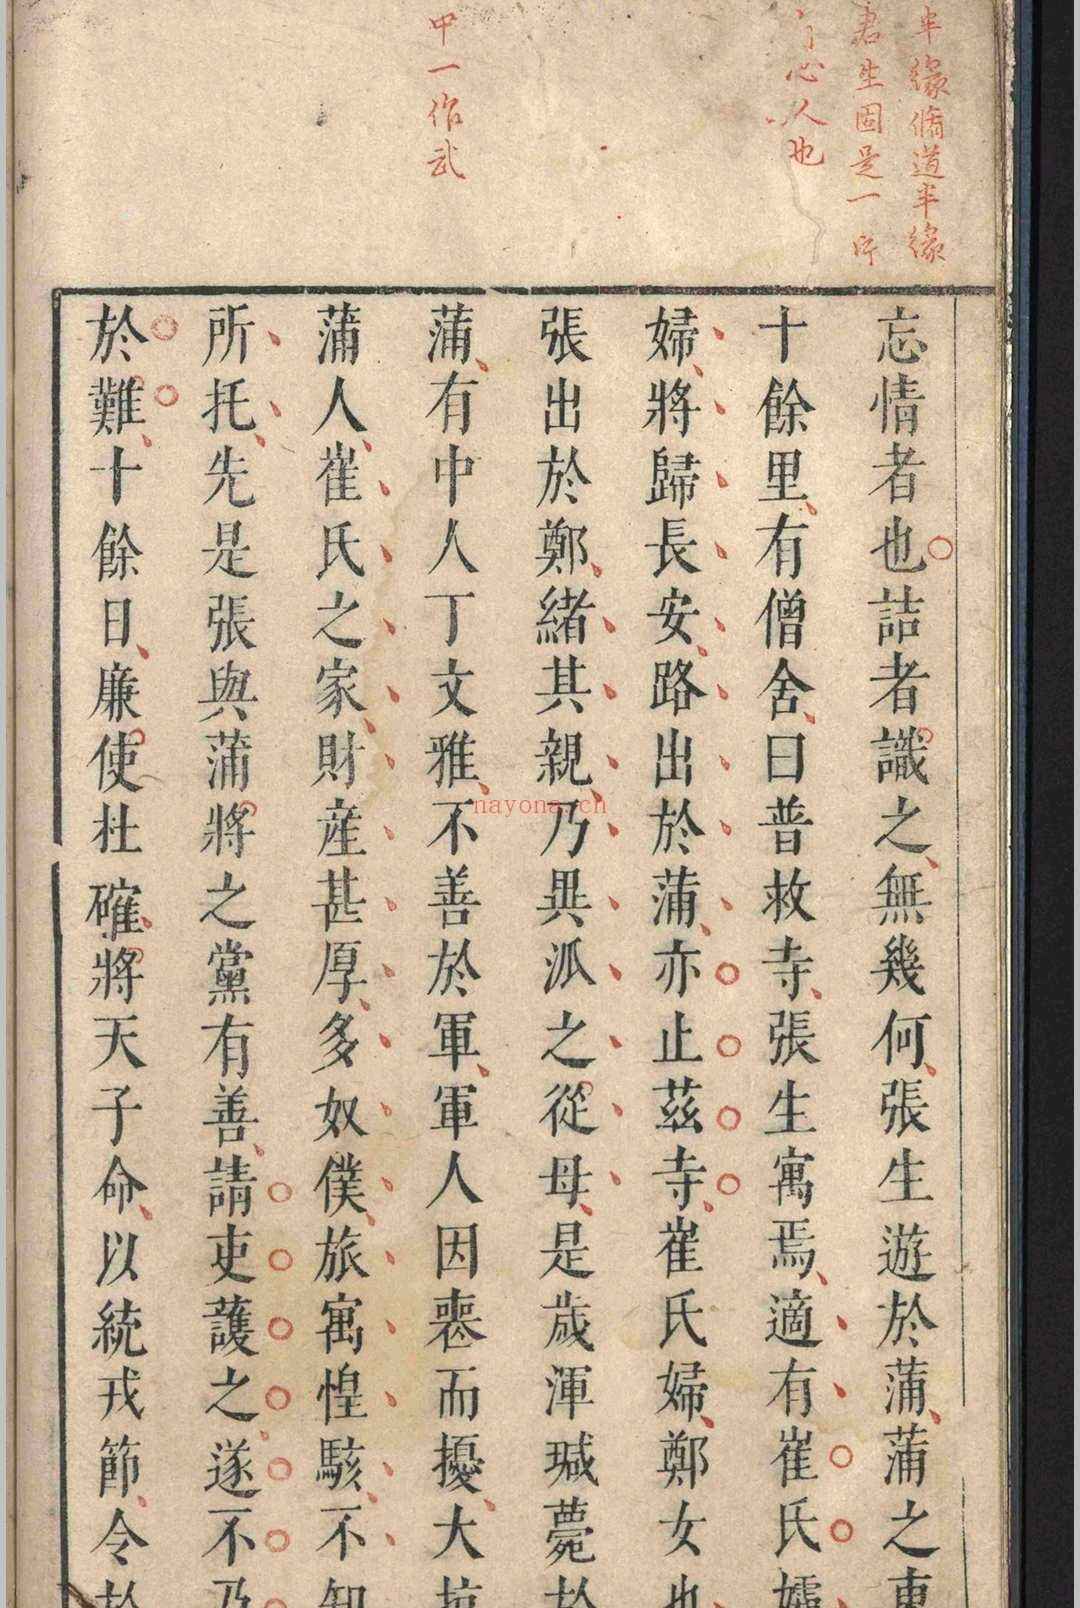 半緣脩道半緣
君生固是一
心人也
中一作武
忘情者也詰者識之無幾何張生遊於蒲蒲之東
十餘里有僧舍曰普救寺張生寓焉適有崔氏孀
婦將歸長安路出於蒲亦止茲寺崔氏婦鄭女也
張出於鄭緒其親乃異派之從母是歲渾瑊薨於
蒲有中人丁文雅不善於軍軍人因喪而擾大掠
蒲人崔氏之家財產甚厚多奴僕旅寓惶駭不知
所托先是張與蒲將之黨有善請吏護之遂不及
於難十餘日廉使杜確將天子命以統戎節令於
nayona.cn